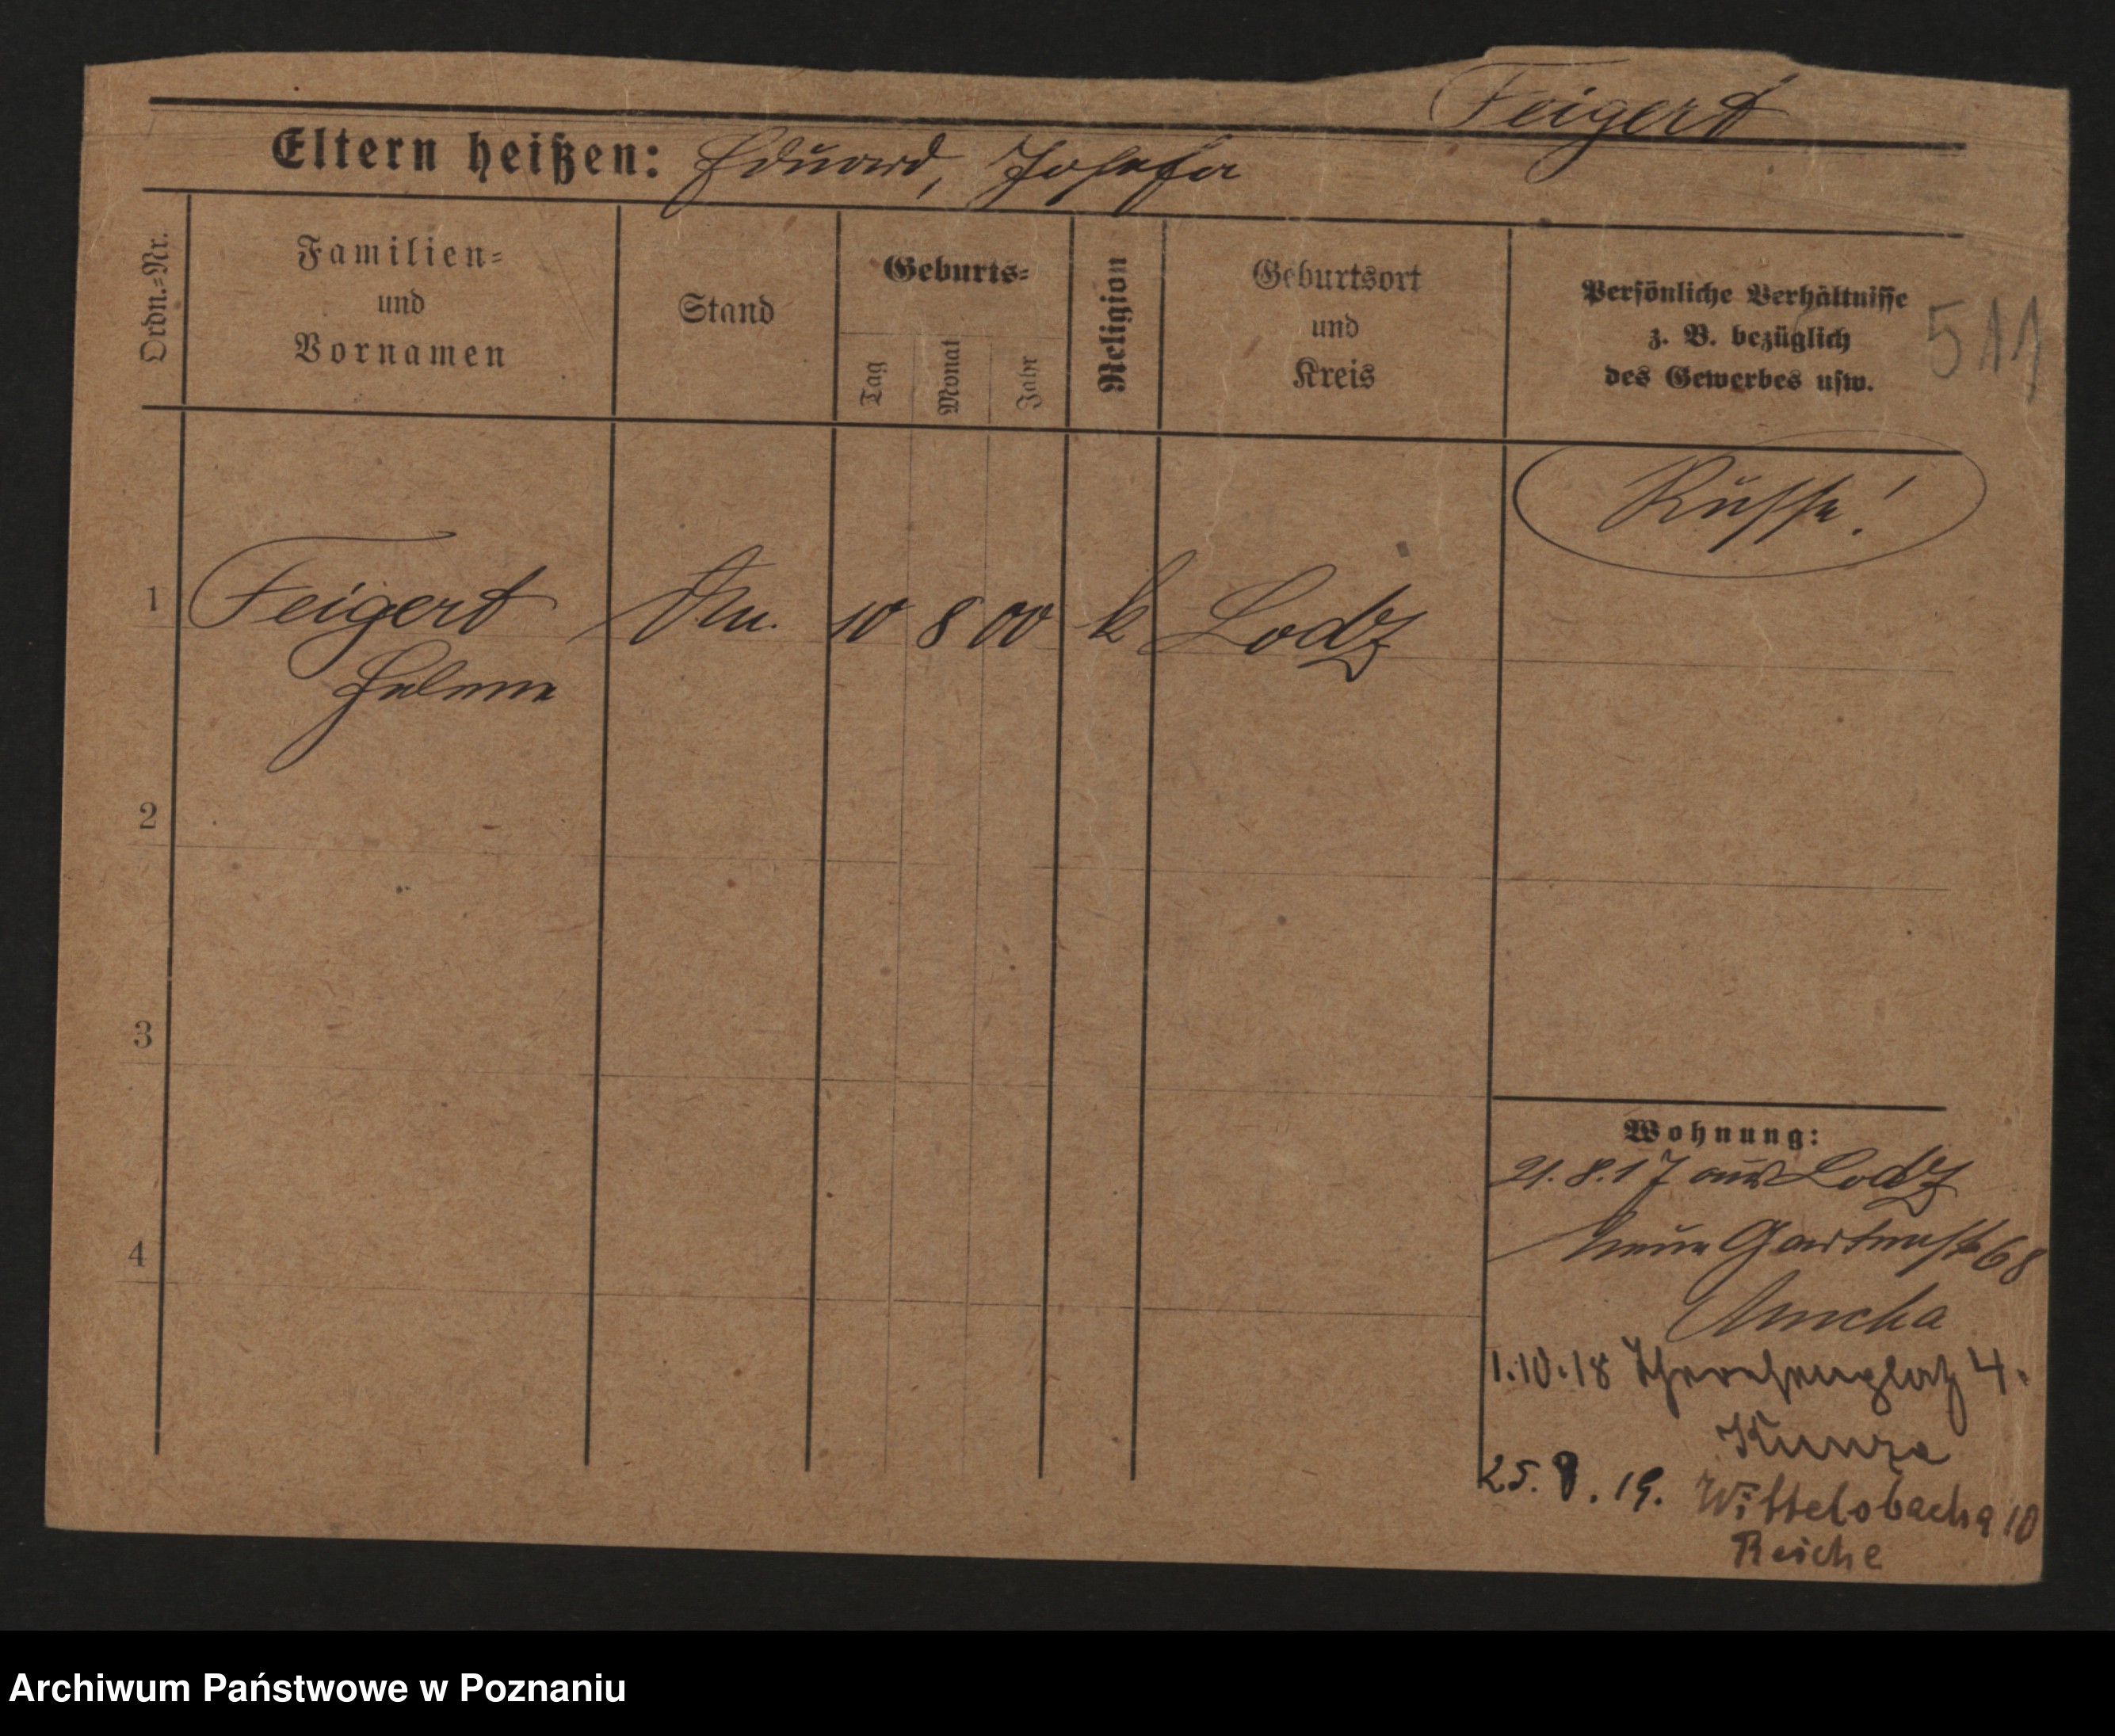 Feigert
Eltern heißen: Eduard, Josefa
Ordn.=Nr.
Familien=
und
Vornamen
Stand
Geburts=
Tag
Monat
Jahr
Religion
Geburtsort
und
Kreis
Persönliche Verhältnisse
z. B. bezüglich
des Gewerbes usw.
511
Russe!
1 Feigert 10 8 00 k Lodz
Helene
2
3
4
Wohnung:
21.8.17 aus Lodz
Neue Gartenstr 68
1.10.18 4.
Kunze
25. 8. 19. Wittelsbacher 10
Reiche
Archiwum Państwowe w Poznaniu